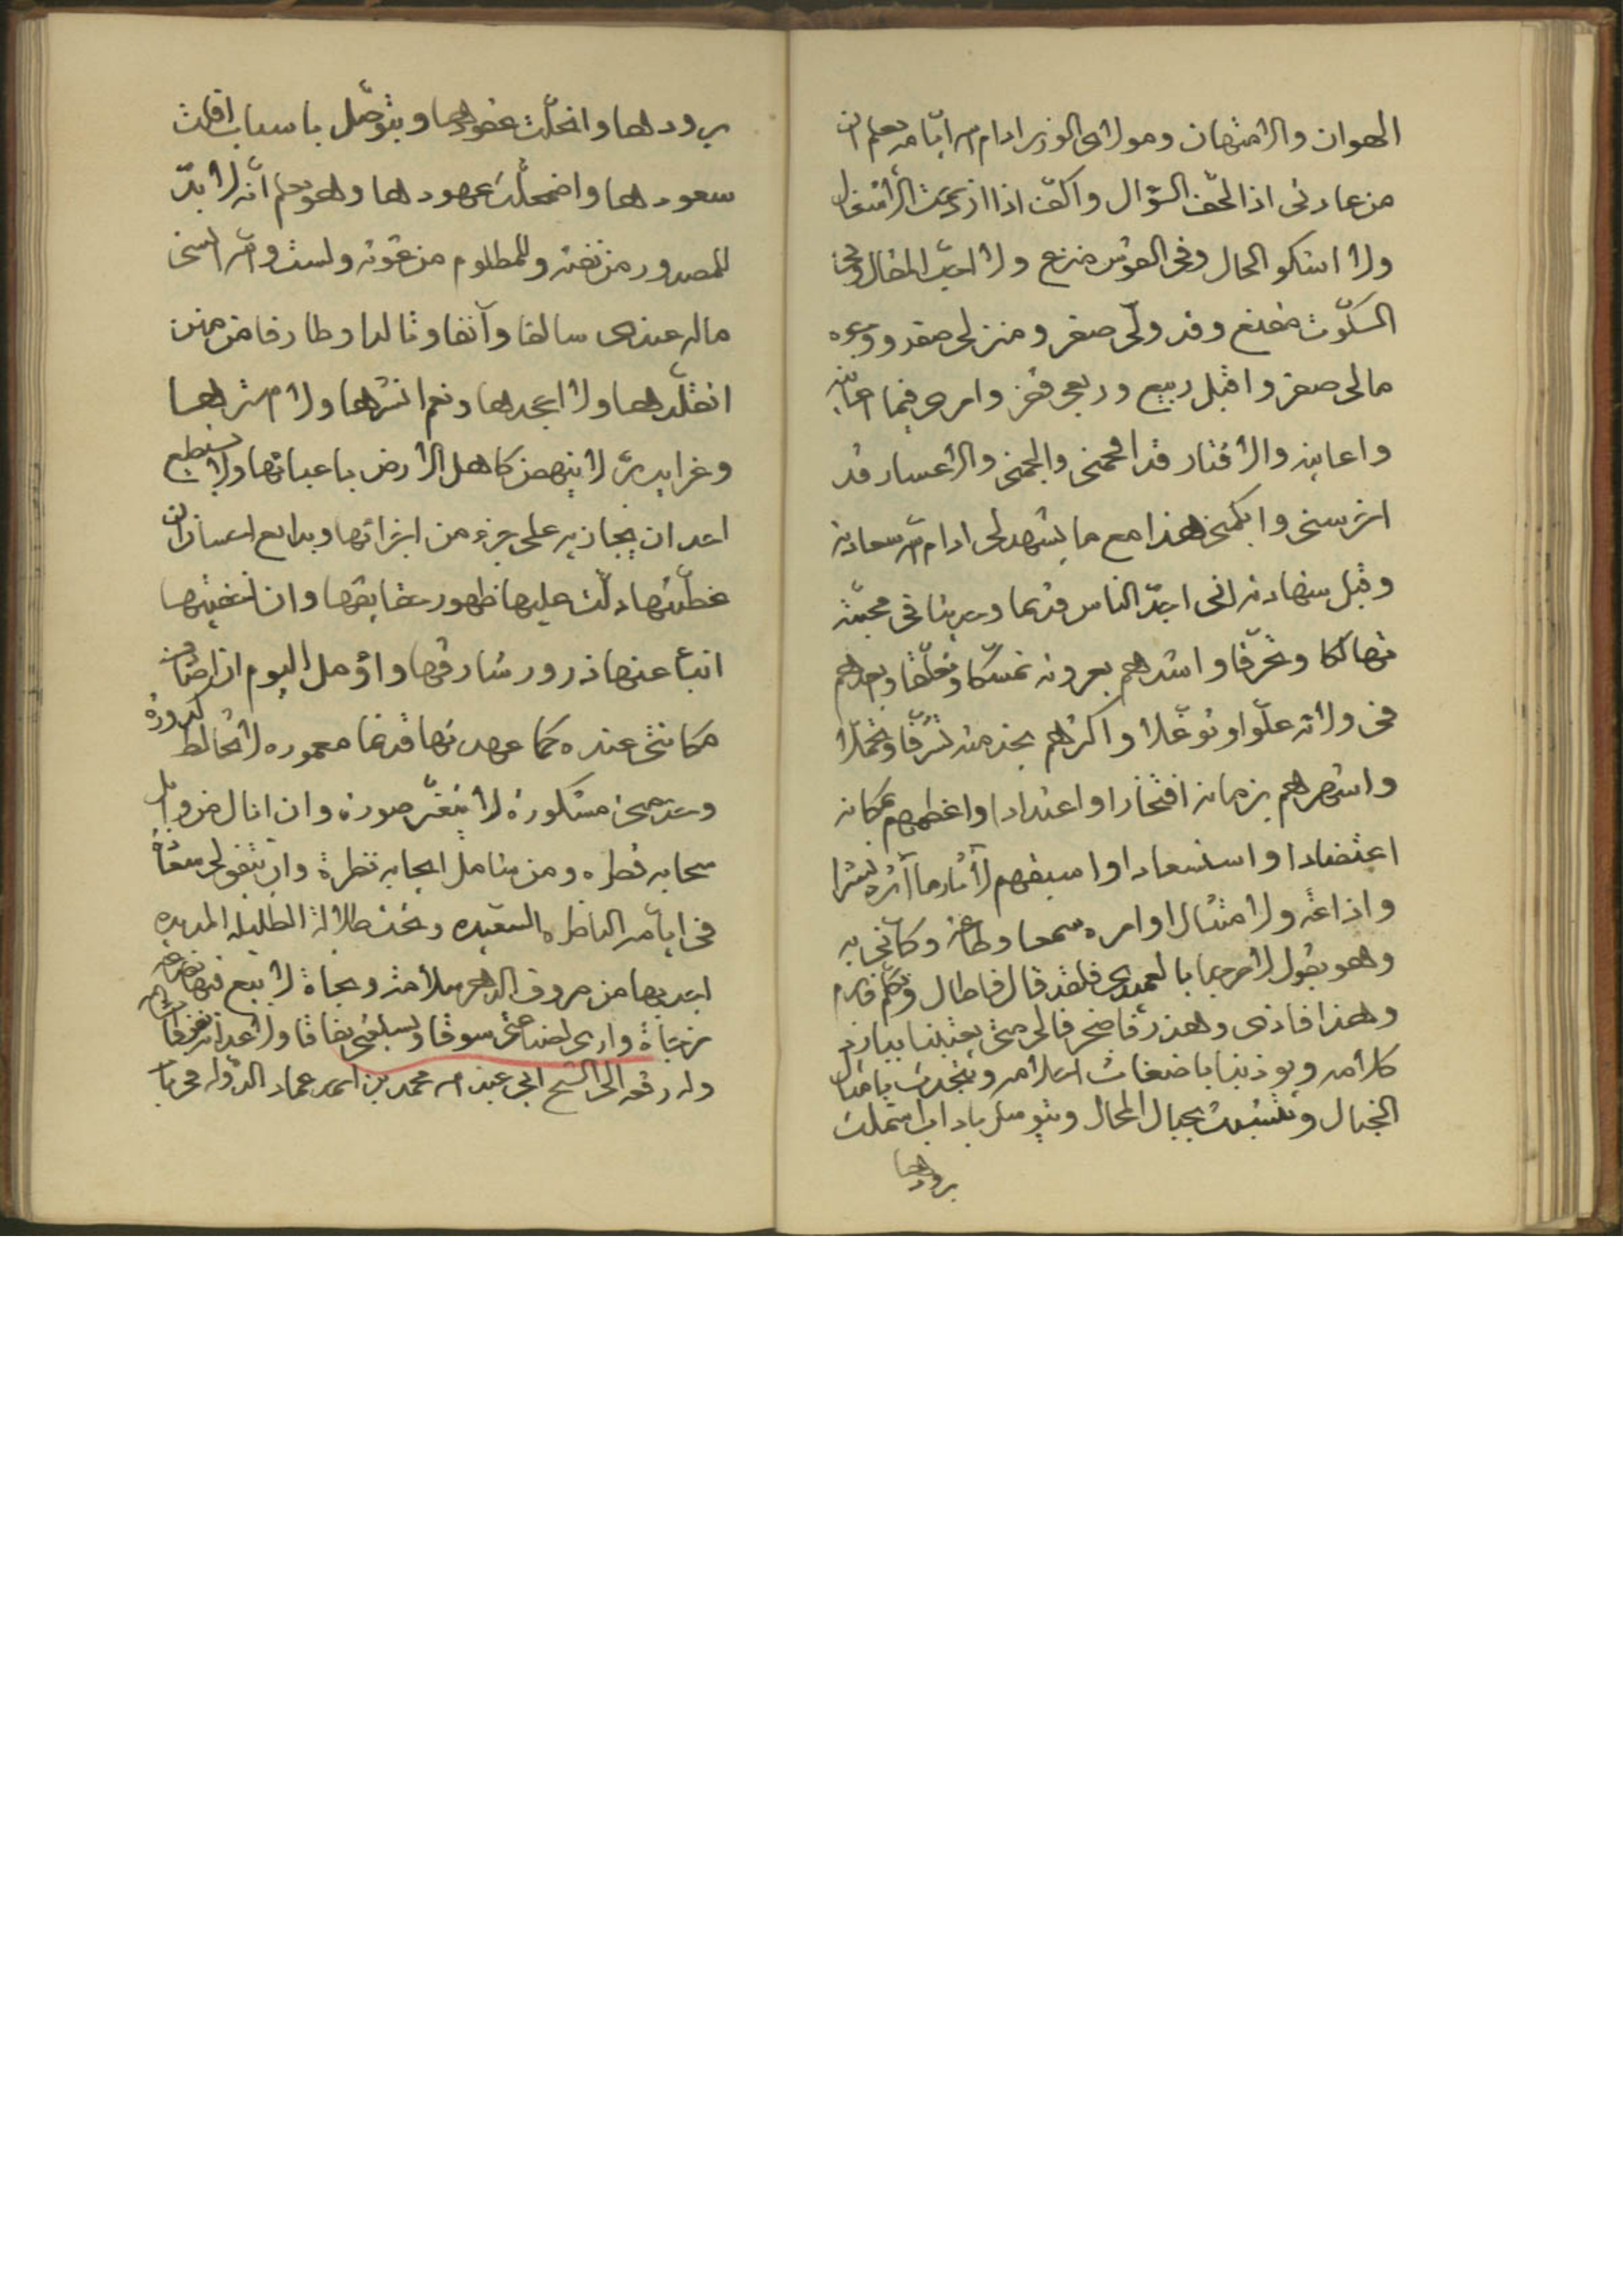 الهوان والامتهان ومولاى الوزير ادام الله ايّامه يعلم ان
من عادتى اذا الحّف السّؤال واكفّ اذا ازدحمت الاشغال
ولا اشكو الحال وفى القوس منزع ولا احبّ المحال وفى
السكوت مقنع وقد ولّى صفر ومنزلى صفر ووجوه
مالى صفر واقبل ربيع وربعى قفر وامرى فيما اعانيه
واعاينه والاقتار قد افحمنى والجمنى والاعسار قد
اخرسنى وابكمنى هذا مع ما يشهد لى ادام الله سعادته
وقبل شهادته انى احدّ الناس قديما وحديثا فى محبّته
تهالكا وتحرّقا واشدهم بعروته تمسّكا وتعلّقا وابعدهم
فى ولائه علوّا وتوغّلا واكثرهم بخدمته تشرّفا وتجمّلا
واشهرهم بزمانه افتخارا واعتدادا واغطهم بمكانه
اعتضادا واستسعادا واسبقهم لآثار مآثره نشرا
واذاعة ولامتثال اوامره سمعا وطاعة وكانّى به
وهو يقول لا مرحبا بالعميدى فلقد قال فاطال وتكلم فابرم
وهذا فاذى وهذر فاضجر فالى متى
كلامه ويوذينا باضغاث احلامه ويتحدث بامثال
الخبال ويتشبث بحبال المحال ويتوسل باداب اسملت
برودها
برودها وانحلّت عقودها ويتوصّل باسباب افلت
سعودها واضمحلّت عهودها وهو يعلم انّه لا بدّ
للمصدور من نفثه وللمظلوم من غوثه ولست والله انسى
ماله عندى سالفا وآنفا وتالدا وطارفا من منن
اتقلّدها ولا اجحدها ونعم انشرها ولا استرها
وغرايب برّ لا ينهض كاهل الارض باعبائها ولا يستطيع
احد ان يجازيه على جزء من اجزائها وبدايع احسان ان
غطّيتها دلّت عليها ظهور حقايقها وان اخفيتها
انبأ عنها ذرور شارقها واؤمل اليوم ان اصادف
مكانتى عنده كما عهدتها قديما معموره لا تخالط كدورة
وخدمتى مشكورة لا يتغيّر صورة وان انال من وابل
سحابه قطره ومن شامل ايجابه نظرة وان تتفق لى سعادة
فى ايامه الناضره السعيده وتحت ظلاله الظليله المديده
اجد بها من صروف الدهر سلامة ونجاة لا ابيع فيها بضاعة
مزجاة وارى لصناعتى سوقا وبسلعتى نفاقا ولاعدائه
وله رقعه الى الشيخ ابى عبد الله محمد بن احمد عماد الدوله